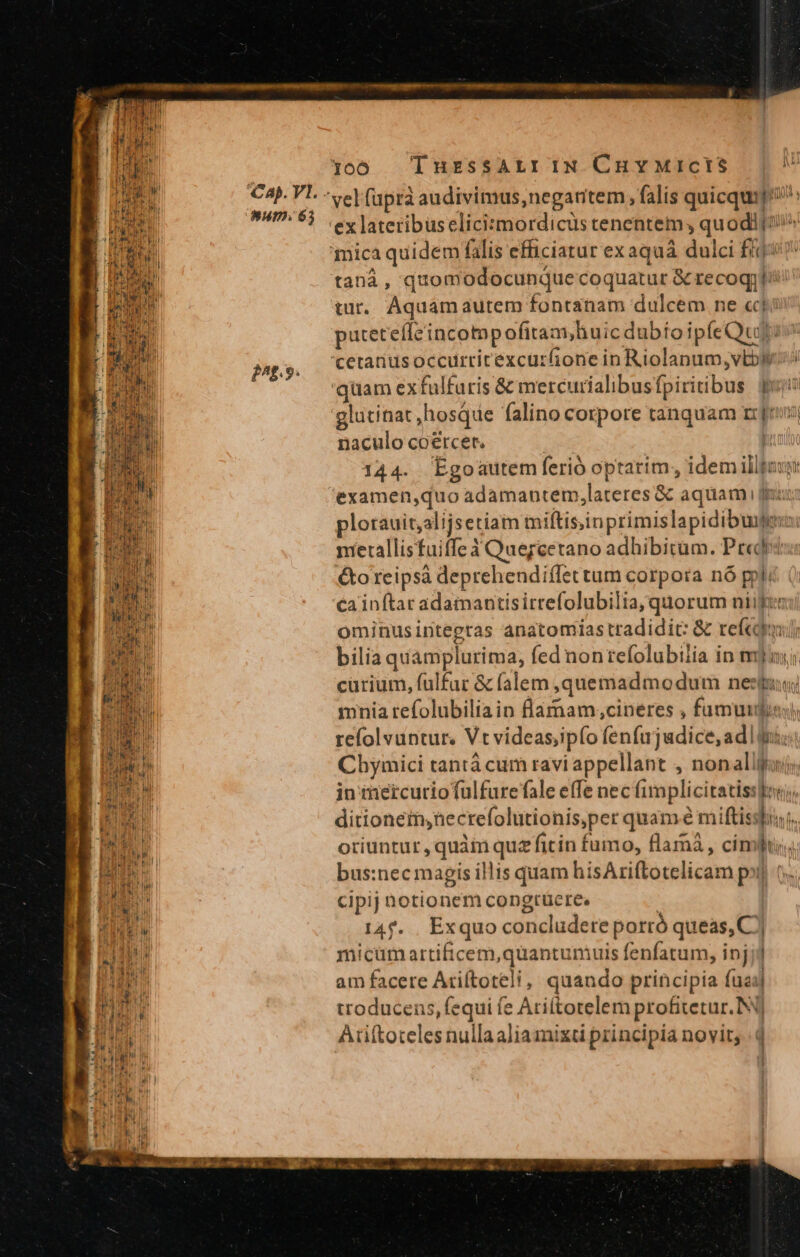 100 THESSALI IN CHYMICIS
Cap. VI. vel ſuprà audivimus, negantem, ſalis quicqu
num. 63 ex lateribus elici: mordicùs tenentem, quod
mica quidem ſalis efficiatur ex aquâ dulci
tanâ, quomodocunque coquatur & recoq
tur. Aquam autem fontanam dulcem ne
putet eſſe incompoſitam, huic dubio ipſe Qu
pag. 9. cetanus occurrit excurſione in Riolanum,
quam ex ſulfuris & mercurialibus ſpiritibus
glutinat, hosque ſalino corpore tanquam
naculo coërcet.
144. Ego autem ſeriò optarim, idem ill
examen, quo adamantem, lateres & aquam
plorauit, alijs etiam miſtis, inprimis lapidibu
metallis fuiſſe à Quercetano adhibitum.
&to reipsâ deprehendiſſet tum corpora nō
ca inſtar adamantis irreſolubilia, quorum
ominus integras anatomias tradidit: &
bilia quamplurima, ſed non reſolubilia in
curium, ſulfur & ſalem, quemadmodum
mnia reſolubilia in flamam, cineres, fumu
reſolvuntur. Vt videas, ipſo ſenſu judice, ad
Chymici tantâ cum ravi appellant, non
in mercurio ſulfure ſale eſſe nec ſimplicitatis
ditionem, nec reſolutionis, per quam è miſtis
oriuntur, quàm quæ ſit in fumo, flamâ,
bus: nec magis illis quam his Ariſtotelicam
cipij notionem congruere.
145. Ex quo concludere porrò queas, C
micum artificem, quantumuis ſenſatum, inj
am facere Ariſtoteli, quando principia ſua
troducens, ſequi ſe Ariſtotelem profitetur.
Ariſtoteles nulla alia mixti principia novit,